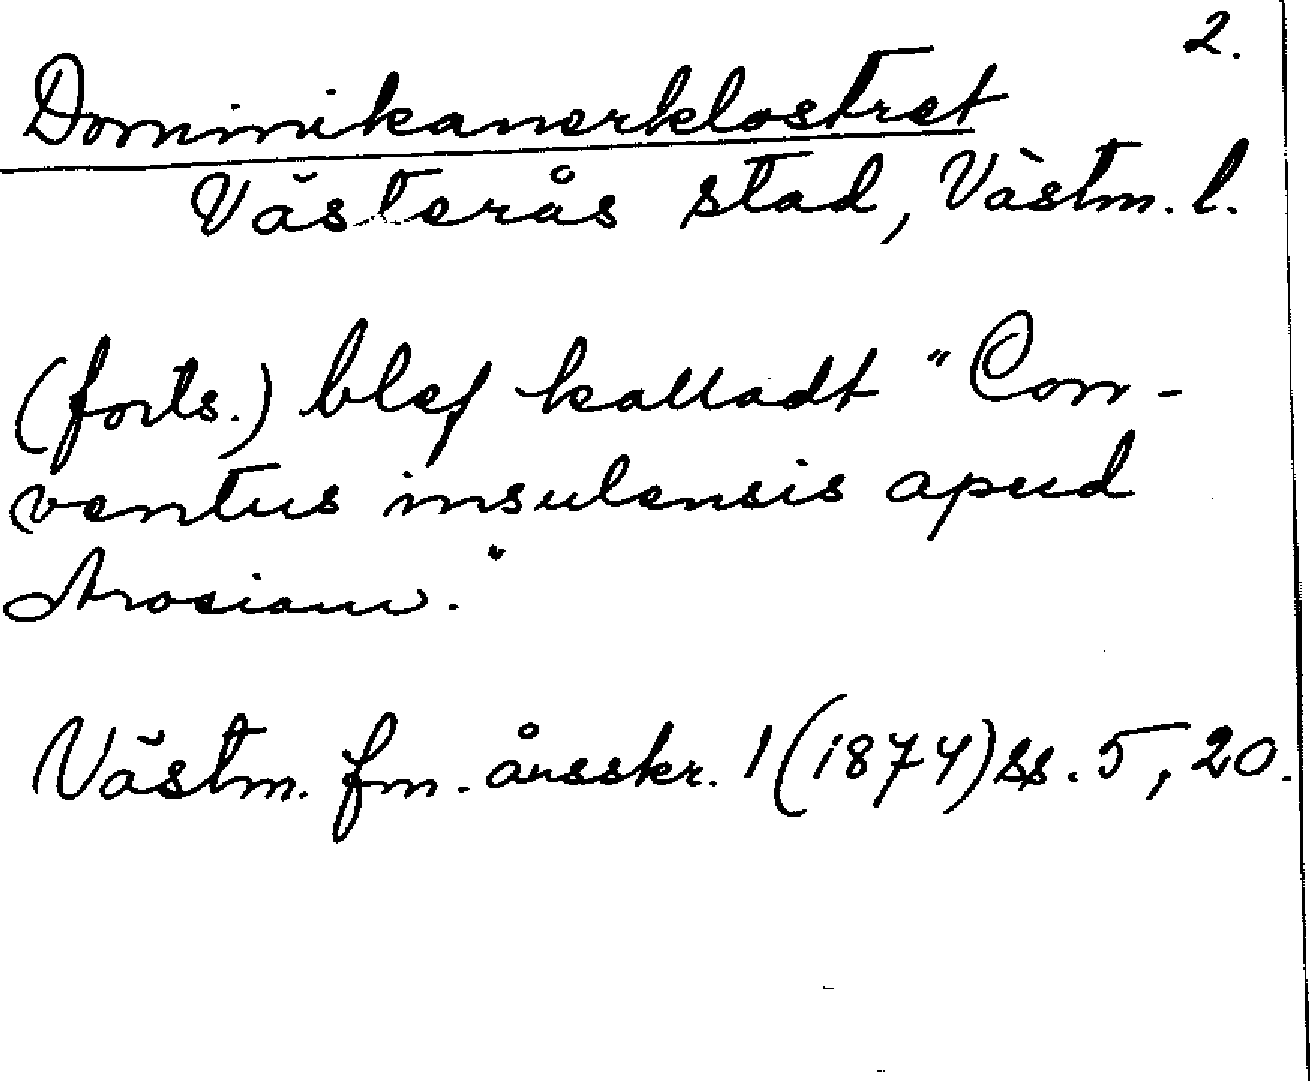 2.
Dominikanerklostret
Västerås stad, Västm. l.
(forts.) blef kalladt "Con-
ventus insulensis apud
Arosiam."
Västm. fm. årsskr. 1 (1874) ss. 5, 20.